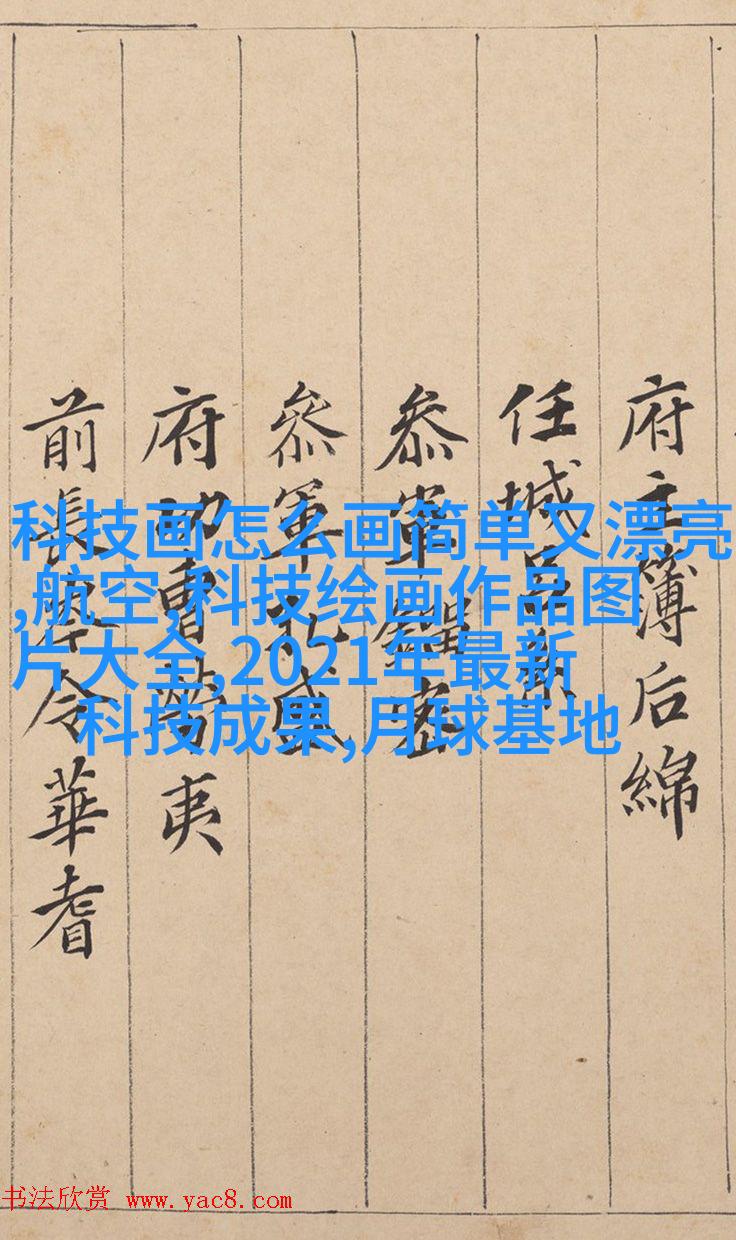 府主簿后綿
任城呂
叅軍密
叅軍孔盛
府功曹勞夷
前長岑令華耆
科技画怎么画简单又漂亮
,航空,科技绘画作品图
片大全,2021年最新
科技成果,月球基地
书法欣赏 www.yac8.com